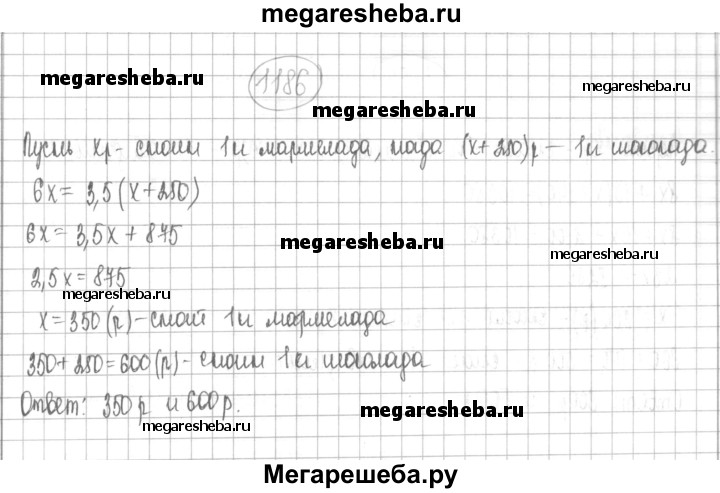 megaresheba.ru
megaresheba.ru
1186
megaresheba.ru
megaresheba.ru
Пусть хр - стоит 1кг мармелада, тогда (х + 250)р - 1кг шоколада.
6х = 3,5(х+250)
6х = 3,5х + 875
megaresheba.ru
2,5х = 875
megaresheba.ru
х = 350 (р) - стоит 1кг мармелада
350 + 250 = 600 (р) - стоит 1кг шоколада
Ответ: 350 р и 600 р.
megaresheba.ru
megaresheba.ru
Мегарешеба.ру